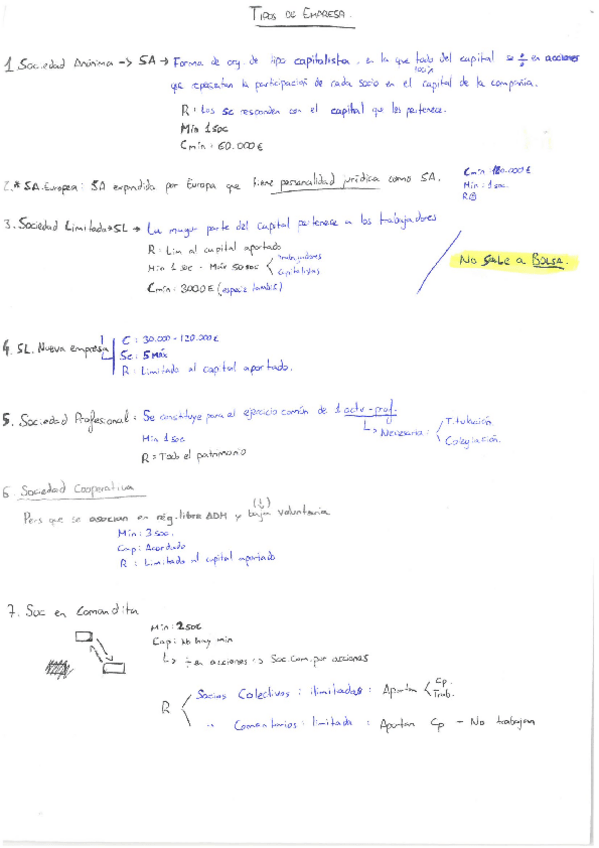 TIPOS DE EMPRESA.
1. Sociedad Anónima -> SA -> Forma de org. de tipo capitalista, en la que todo del capital se ÷ en acciones
que representan la participación de cada socio en el capital de la compañía.
R: Los Sc responden con el capital que les pertenece.
Min 1 soc
Cmin: 60.000€
2.* SA. Europea: SA expandida por Europa que tiene personalidad jurídica como SA.
Cmin 120.000€
Min: 1 soc.
3. Sociedad Limitada -> SL -> La mayor parte del capital pertenece a los trabajadores
R: Lim al capital aportado
Min 1 soc - Máx 50 soc < trabajadores
capitalistas
Cmin: 3000€ (especie también)
No Sale a BOLSA.
4. SL. Nueva empresa
C: 30.000 - 120.000€
Sc: 5 Máx
R: Limitado al capital aportado.
5. Sociedad Profesional: Se constituye para el ejercicio común de 1 actv-prof.
Necesaria: Titulación
Colegiación.
Min 1 soc
R = Todo el patrimonio
6. Sociedad Cooperativa
Pers que se asocian en rég. libre ADM y baja voluntaria
Min: 3 soc.
Cap: Acordado
R: Limitado al capital aportado
7. Soc en Comandita
Min: 2 soc
Cap: No hay min
÷ en acciones -> Soc. Com. por acciones
R
Socios Colectivos: ilimitadas: Aportan < Cp.
Trab.
" Comentarios: limitada: Aportan Cp - No trabajan